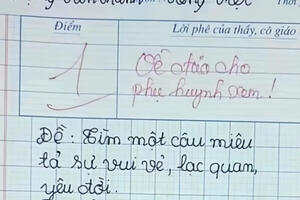 Điểm
Lời phê của thầy, cô giáo
1
Về đưa cho
phụ huynh xem!
Đề: Tìm một câu miêu
tả sự vui vẻ, lạc quan,
yêu đời.